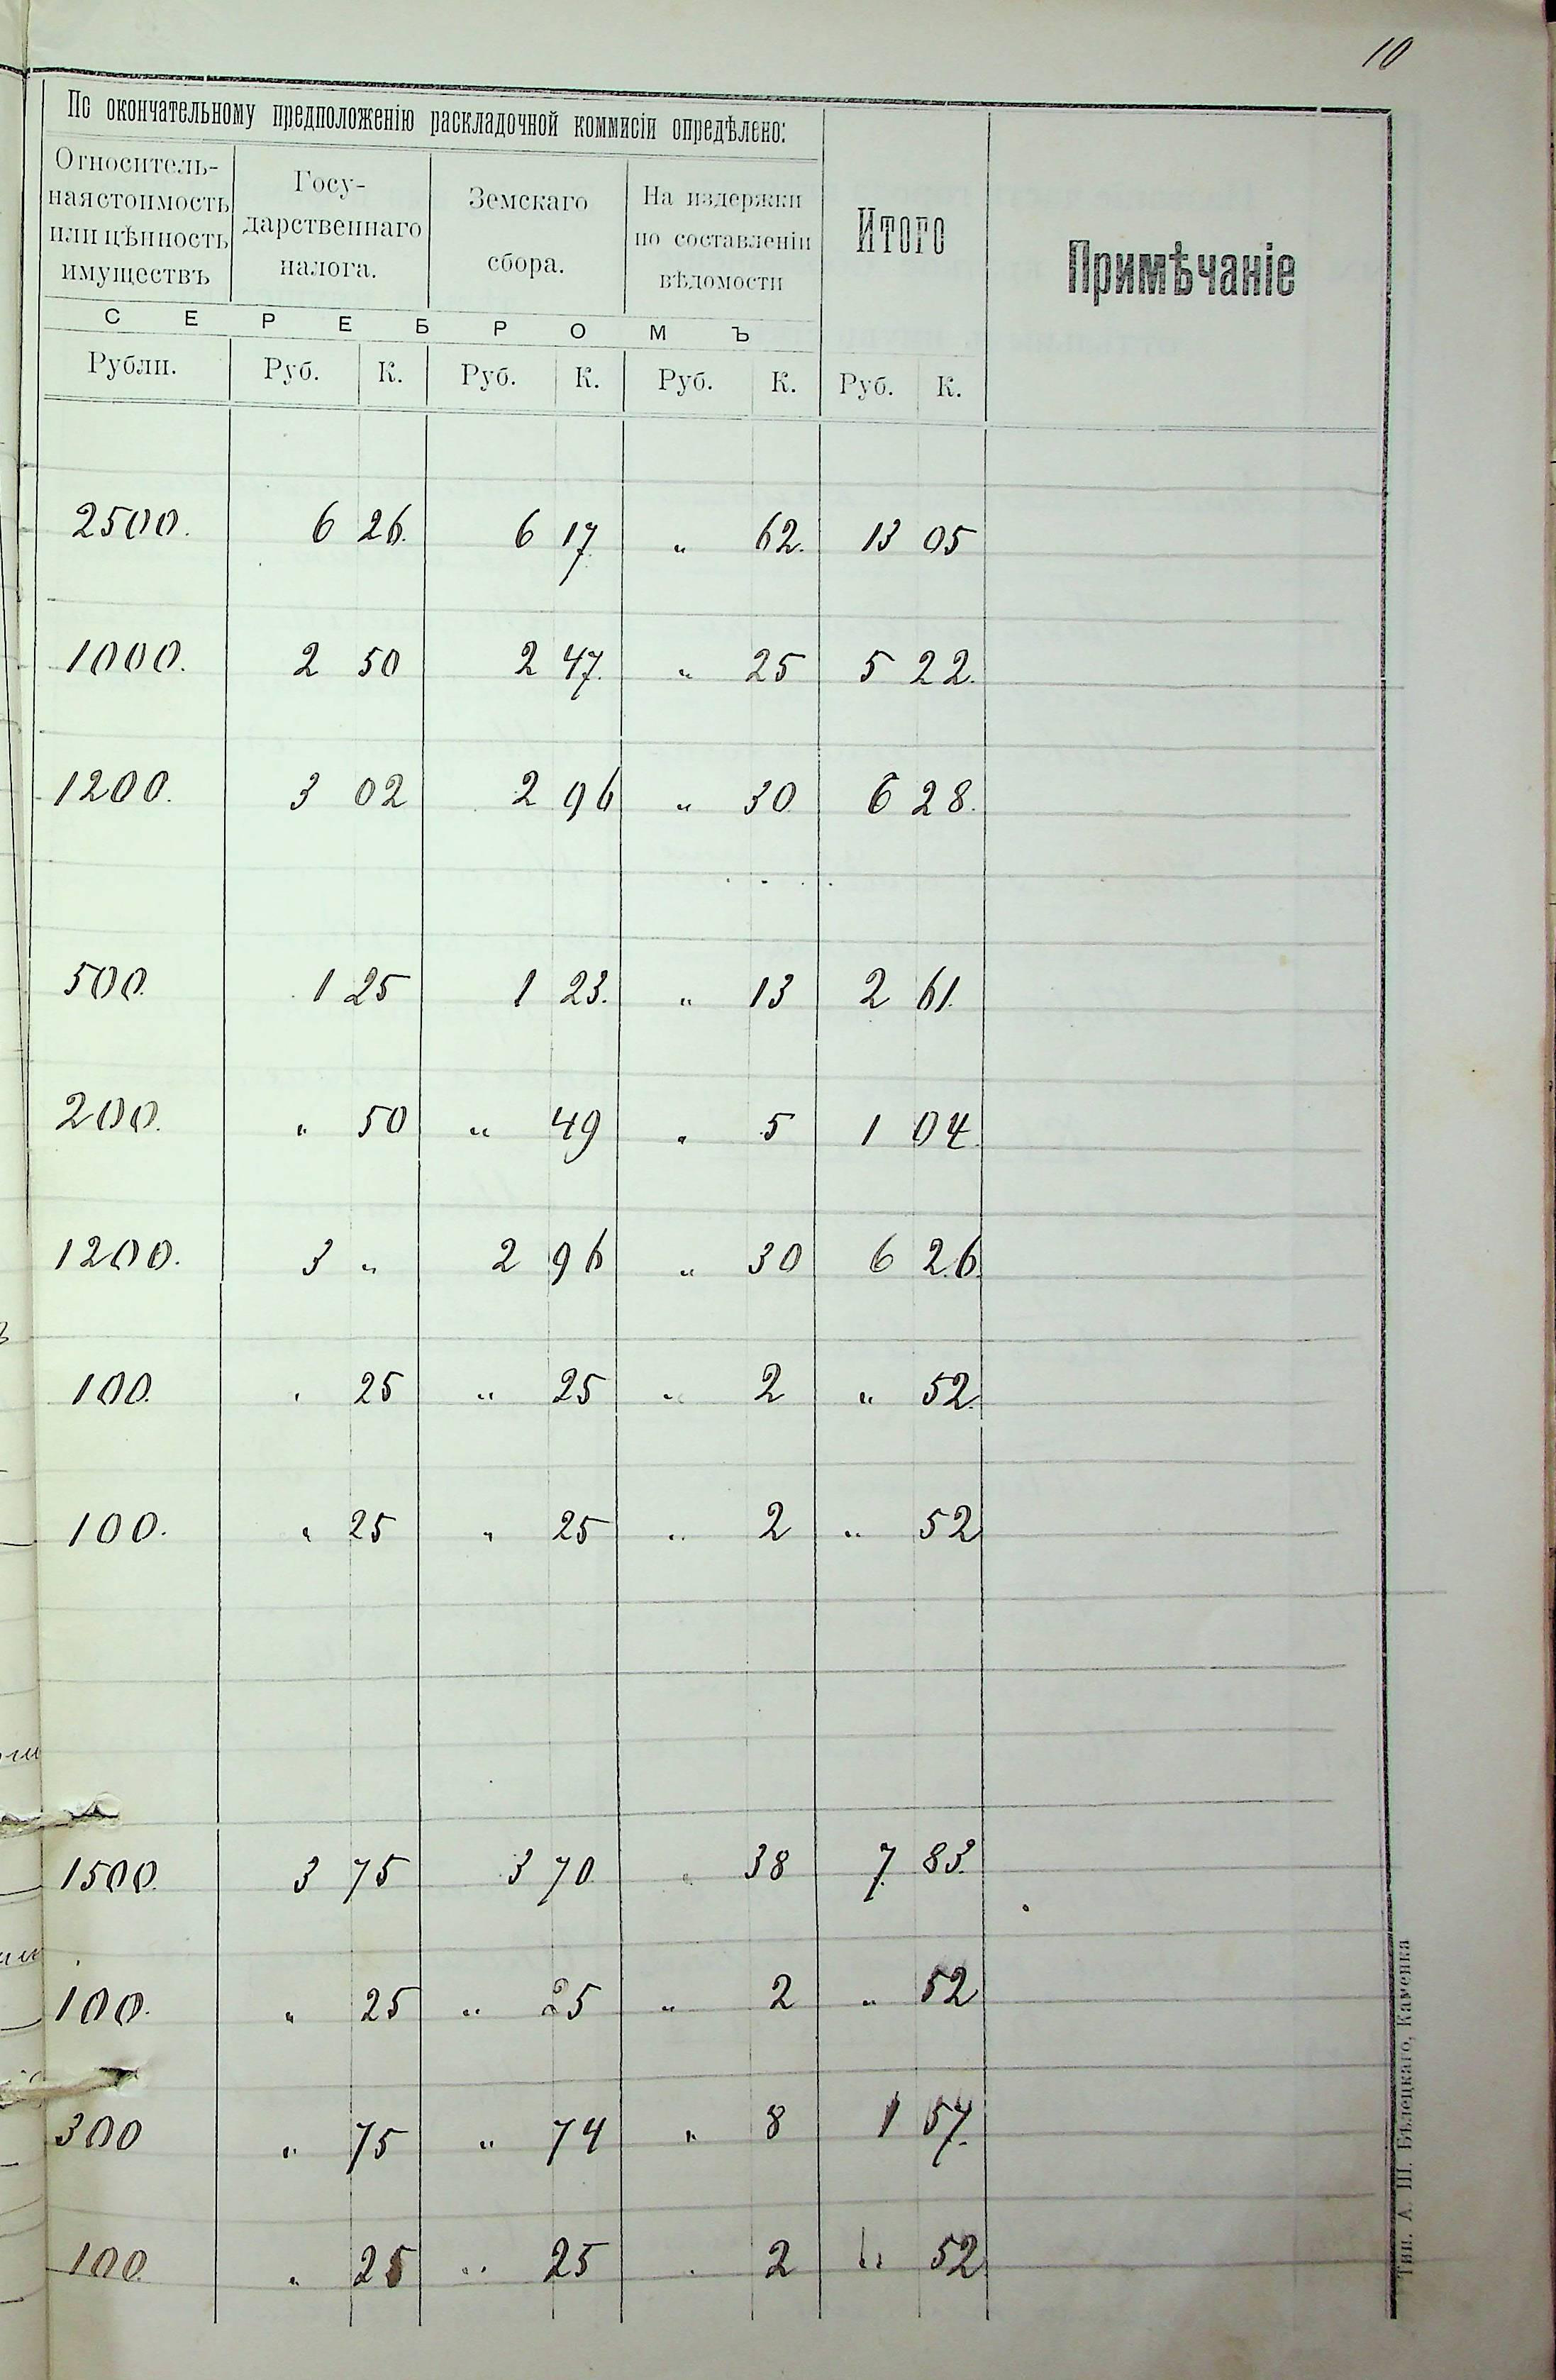 10
По окончательному предположенію раскладочной коммисіи опредѣлено:
Относитель-
ная стоимость
или цѣнность
имуществъ
Госу-
дарственнаго
налога.
Земскаго
сбора.
На издержки
по составленіи
вѣдомости
Итого
Примѣчаніе
СЕРЕБРОМЪ
Рубли. Руб. К. Руб. К. Руб. К. Руб. К.
2500. 6 26. 6 17 „ 62. 13 05
1000. 2 50 2 47. „ 25 5 22.
1200. 3 02 2 96 „ 30 6 28.
500. 1 25 1 23. „ 13 2 61.
200. „ 50 „ 49 „ 5 1 04.
1200. 3 „ 2 96 „ 30 6 26.
100. „ 25 „ 25 „ 2 „ 52.
100. „ 25 „ 25 „ 2 „ 52
1500. 3 75 3 70 „ 38 7 83.
100. „ 25 „ 25 „ 2 „ 52
300 „ 75 „ 74 „ 8 1 57.
100. „ 25 „ 25 „ 2 „ 52
Тип. А. Ш. Бѣлецкаго, Каменка